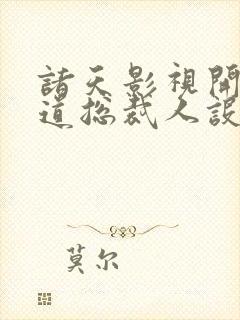 諸天影視開
道總裁人設
莫尔